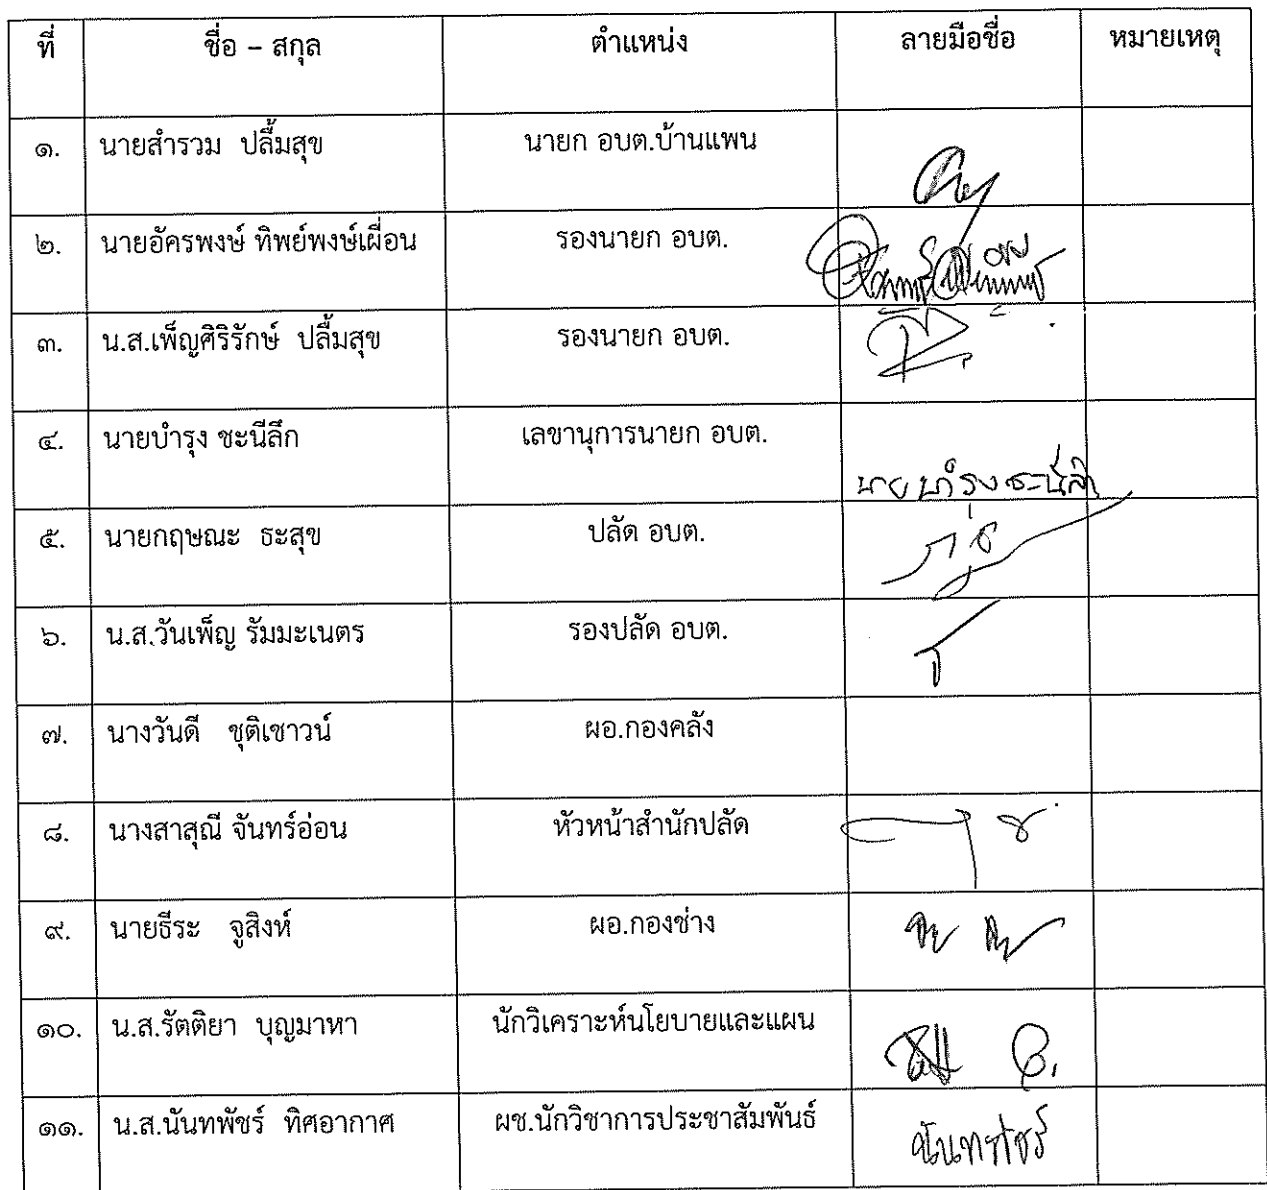 ที่ ชื่อ – สกุล ตำแหน่ง ลายมือชื่อ หมายเหตุ
๑. นายสำรวม ปลื้มสุข นายก อบต.บ้านแพน
๒. นายอัครพงษ์ ทิพย์พงษ์เผื่อน รองนายก อบต.
๓. น.ส.เพ็ญศิริรักษ์ ปลื้มสุข รองนายก อบต.
๔. นายบำรุง ชะนีลึก เลขานุการนายก อบต. นายบำรุง ชะนีลึก
๕. นายกฤษณะ ธะสุข ปลัด อบต.
๖. น.ส.วันเพ็ญ รัมมะเนตร รองปลัด อบต.
๗. นางวันดี ชุติเชาวน์ ผอ.กองคลัง
๘. นางสาสุณี จันทร์อ่อน หัวหน้าสำนักปลัด
๙. นายธีระ จูสิงห์ ผอ.กองช่าง
๑๐. น.ส.รัตติยา บุญมาหา นักวิเคราะห์นโยบายและแผน
๑๑. น.ส.นันทพัชร์ ทิศอากาศ ผช.นักวิชาการประชาสัมพันธ์ นันทพัชร์